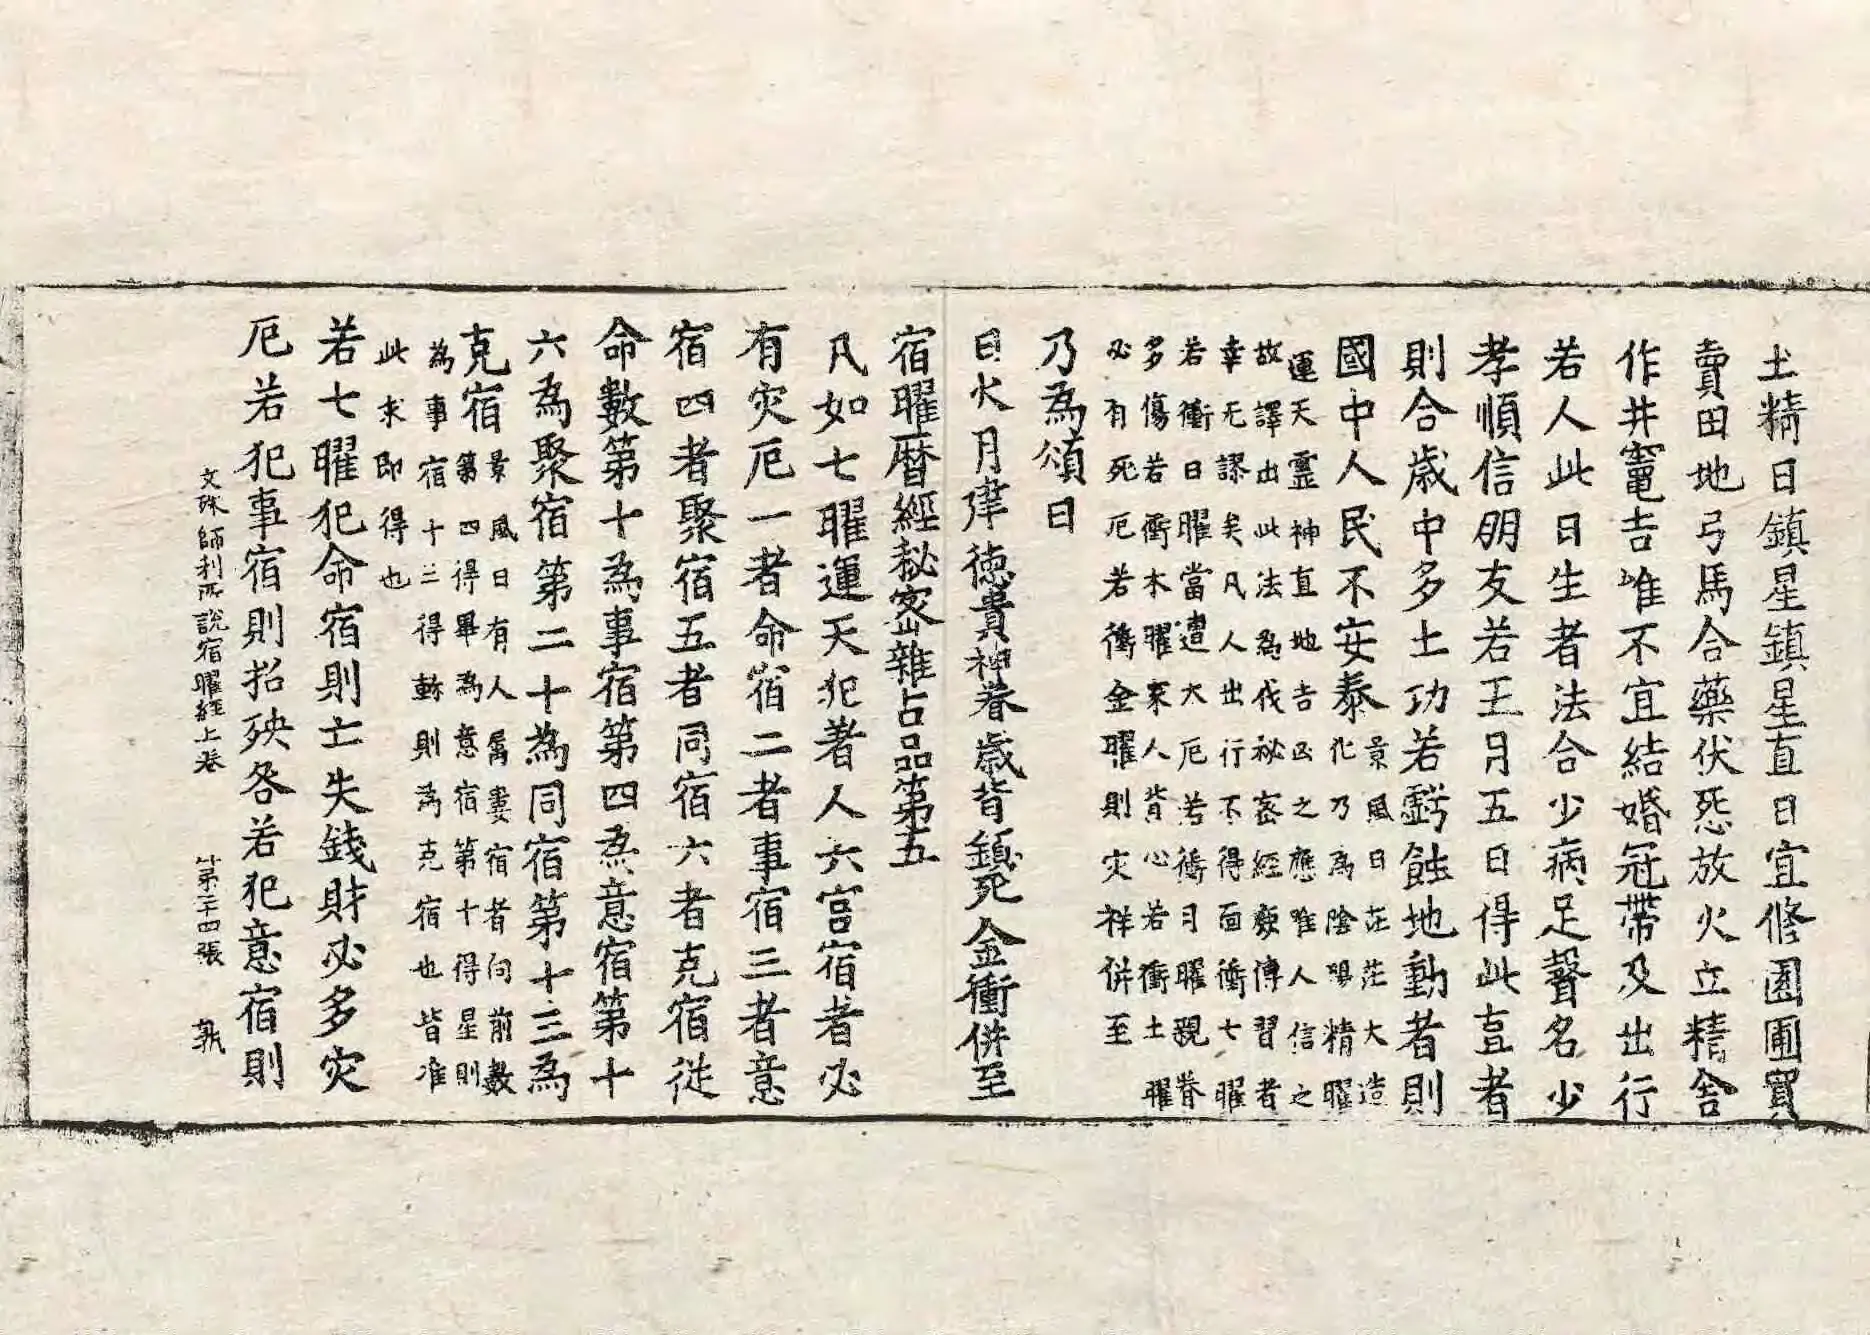 土精日鎮星鎮星直日宜修園圃買
賣田地弓馬合藥伏怨放火立精舍
作井竈吉唯不宜結婚冠帶及出行
若人此日生者法合少病足聲名少
孝順信朋友若五月五日得此直者
則合歲中多土功若虧蝕地動者則
國中人民不安泰
景風日茫茫大造
化乃為陰陽精曜
運天靈神直地吉凶之應唯人信之
故譯出此法為伐祕密經庶傳習者
幸无謬矣凡人出行不得面衝七曜
若衝日曜當遭大厄若衝月曜親眷
多傷若衝木曜家人背心若衝土曜
必有死厄若衝金曜則灾祥併至
乃為頌曰
日火月律徳貴神眷歲背鎮死金衝併至
宿曜曆經秘密雜占品第五
凡如七曜運天犯著人六宮宿者必
有灾厄一者命宿二者事宿三者意
宿四者聚宿五者同宿六者克宿從
命數第十為事宿第四為意宿第十
六為聚宿第二十為同宿第十三為
克宿
景風日有人屬婁宿者向前數
第四得畢為意宿第十得星則
為事宿十三得軫則為克宿也皆准
此求即得也
若七曜犯命宿則亡失錢財必多灾
厄若犯事宿則招殃咎若犯意宿則
文殊師利所說宿曜經上卷 第二十四張